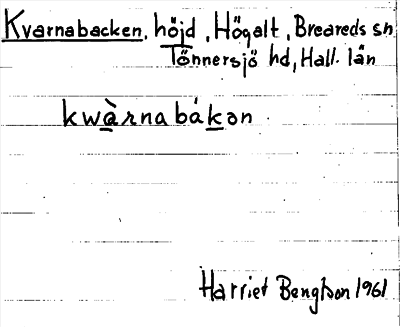 Kvarnabacken, höjd, Högalt, Breareds sn
Tönnersjö hd, Hall. län
kwàrnabákən
Harriet Bengtson 1961